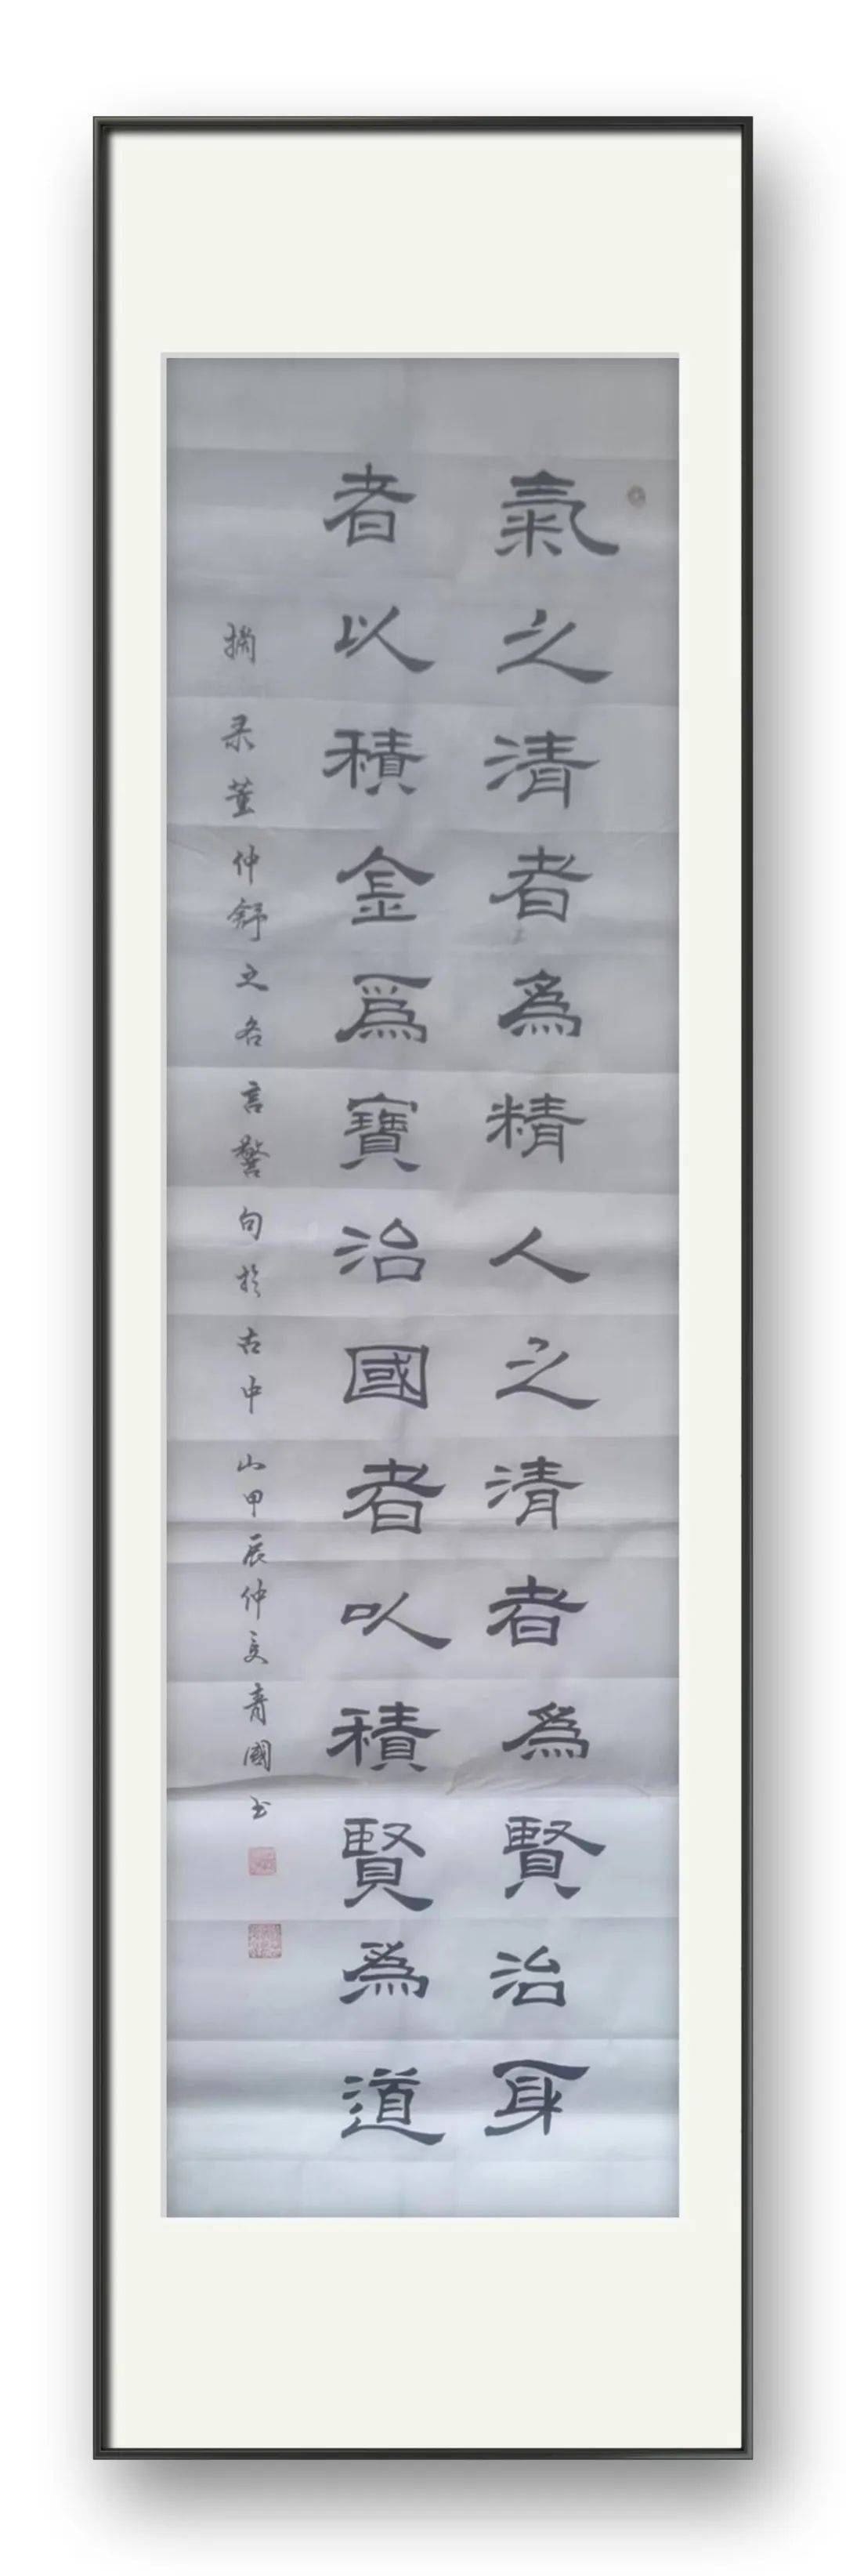 氣之清者為精人之清者為賢治身
者以積金爲寶治國者以積賢為道
摘录董仲舒之名言警句於古中山甲辰仲夏青國书